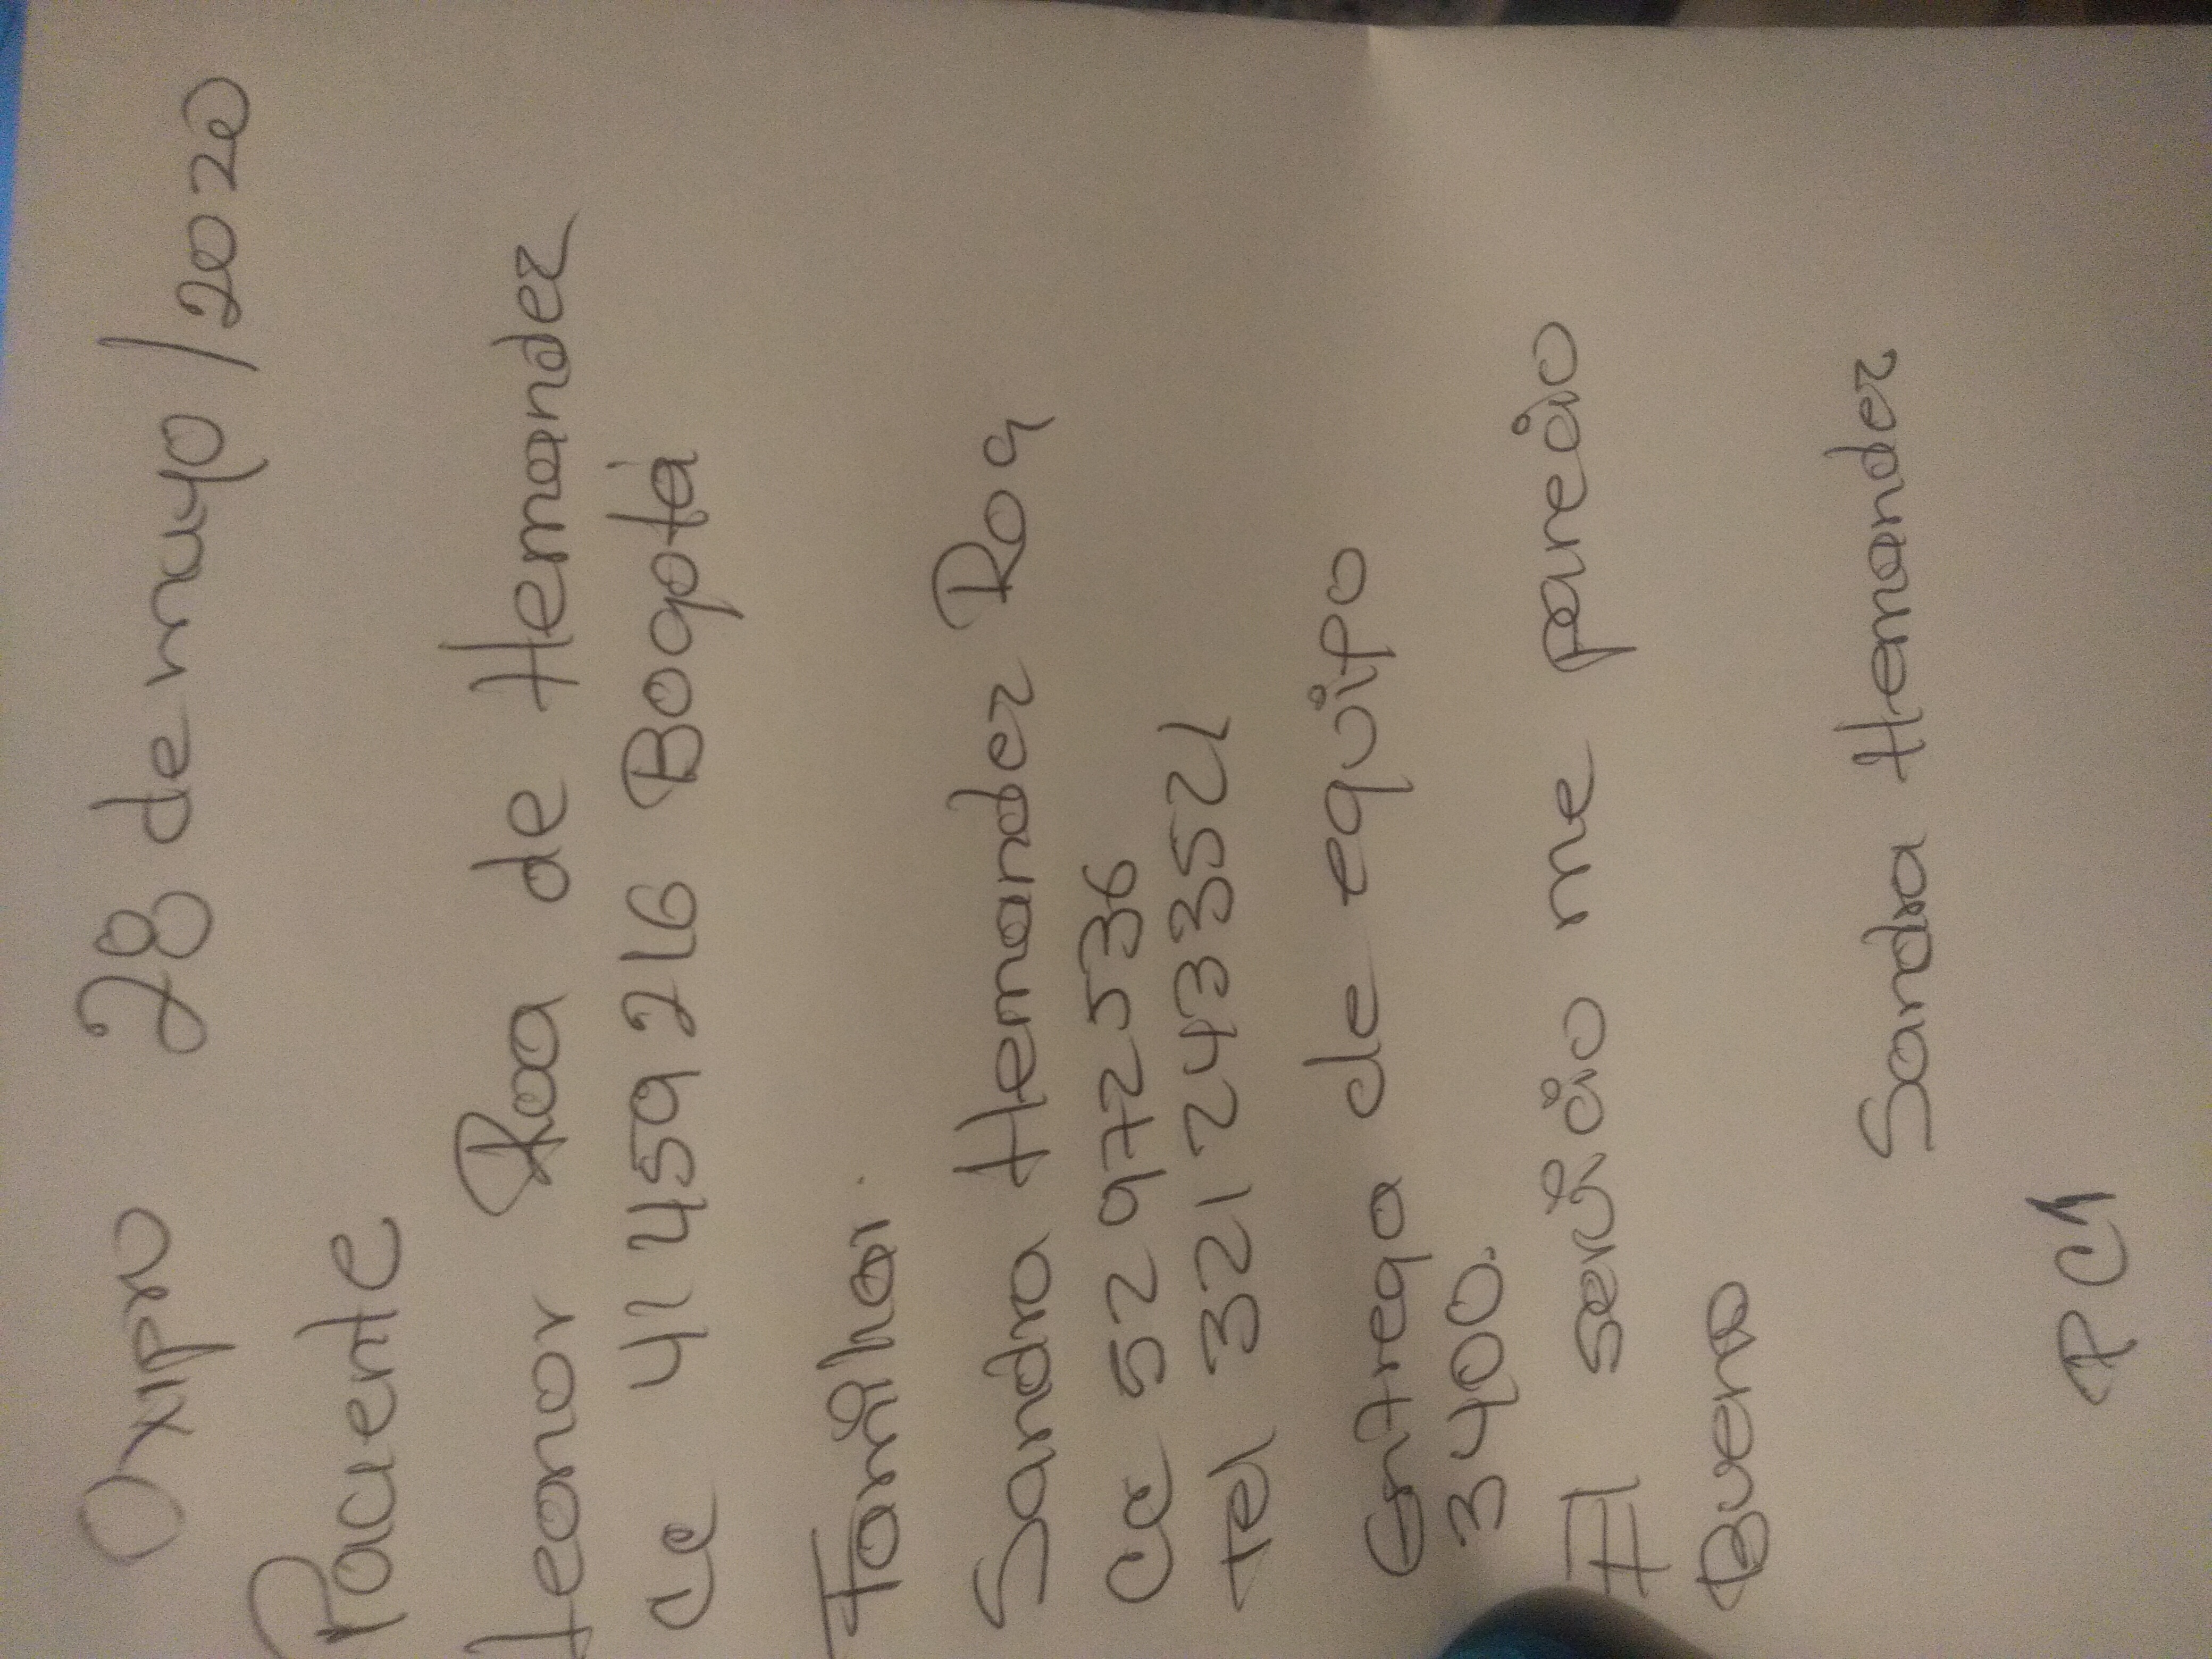 Oxipro 28 de mayo/2020
Paciente
Leonor Roa de Hernandez
cc 41 459 216 Bogotá
Familiar.
Sandra Hernandez Roa
cc 52 972 536
Tel 321 2433521
Entrega de equipo
3400.
El servicio me pareció
Bueno
Sandra Hernandez